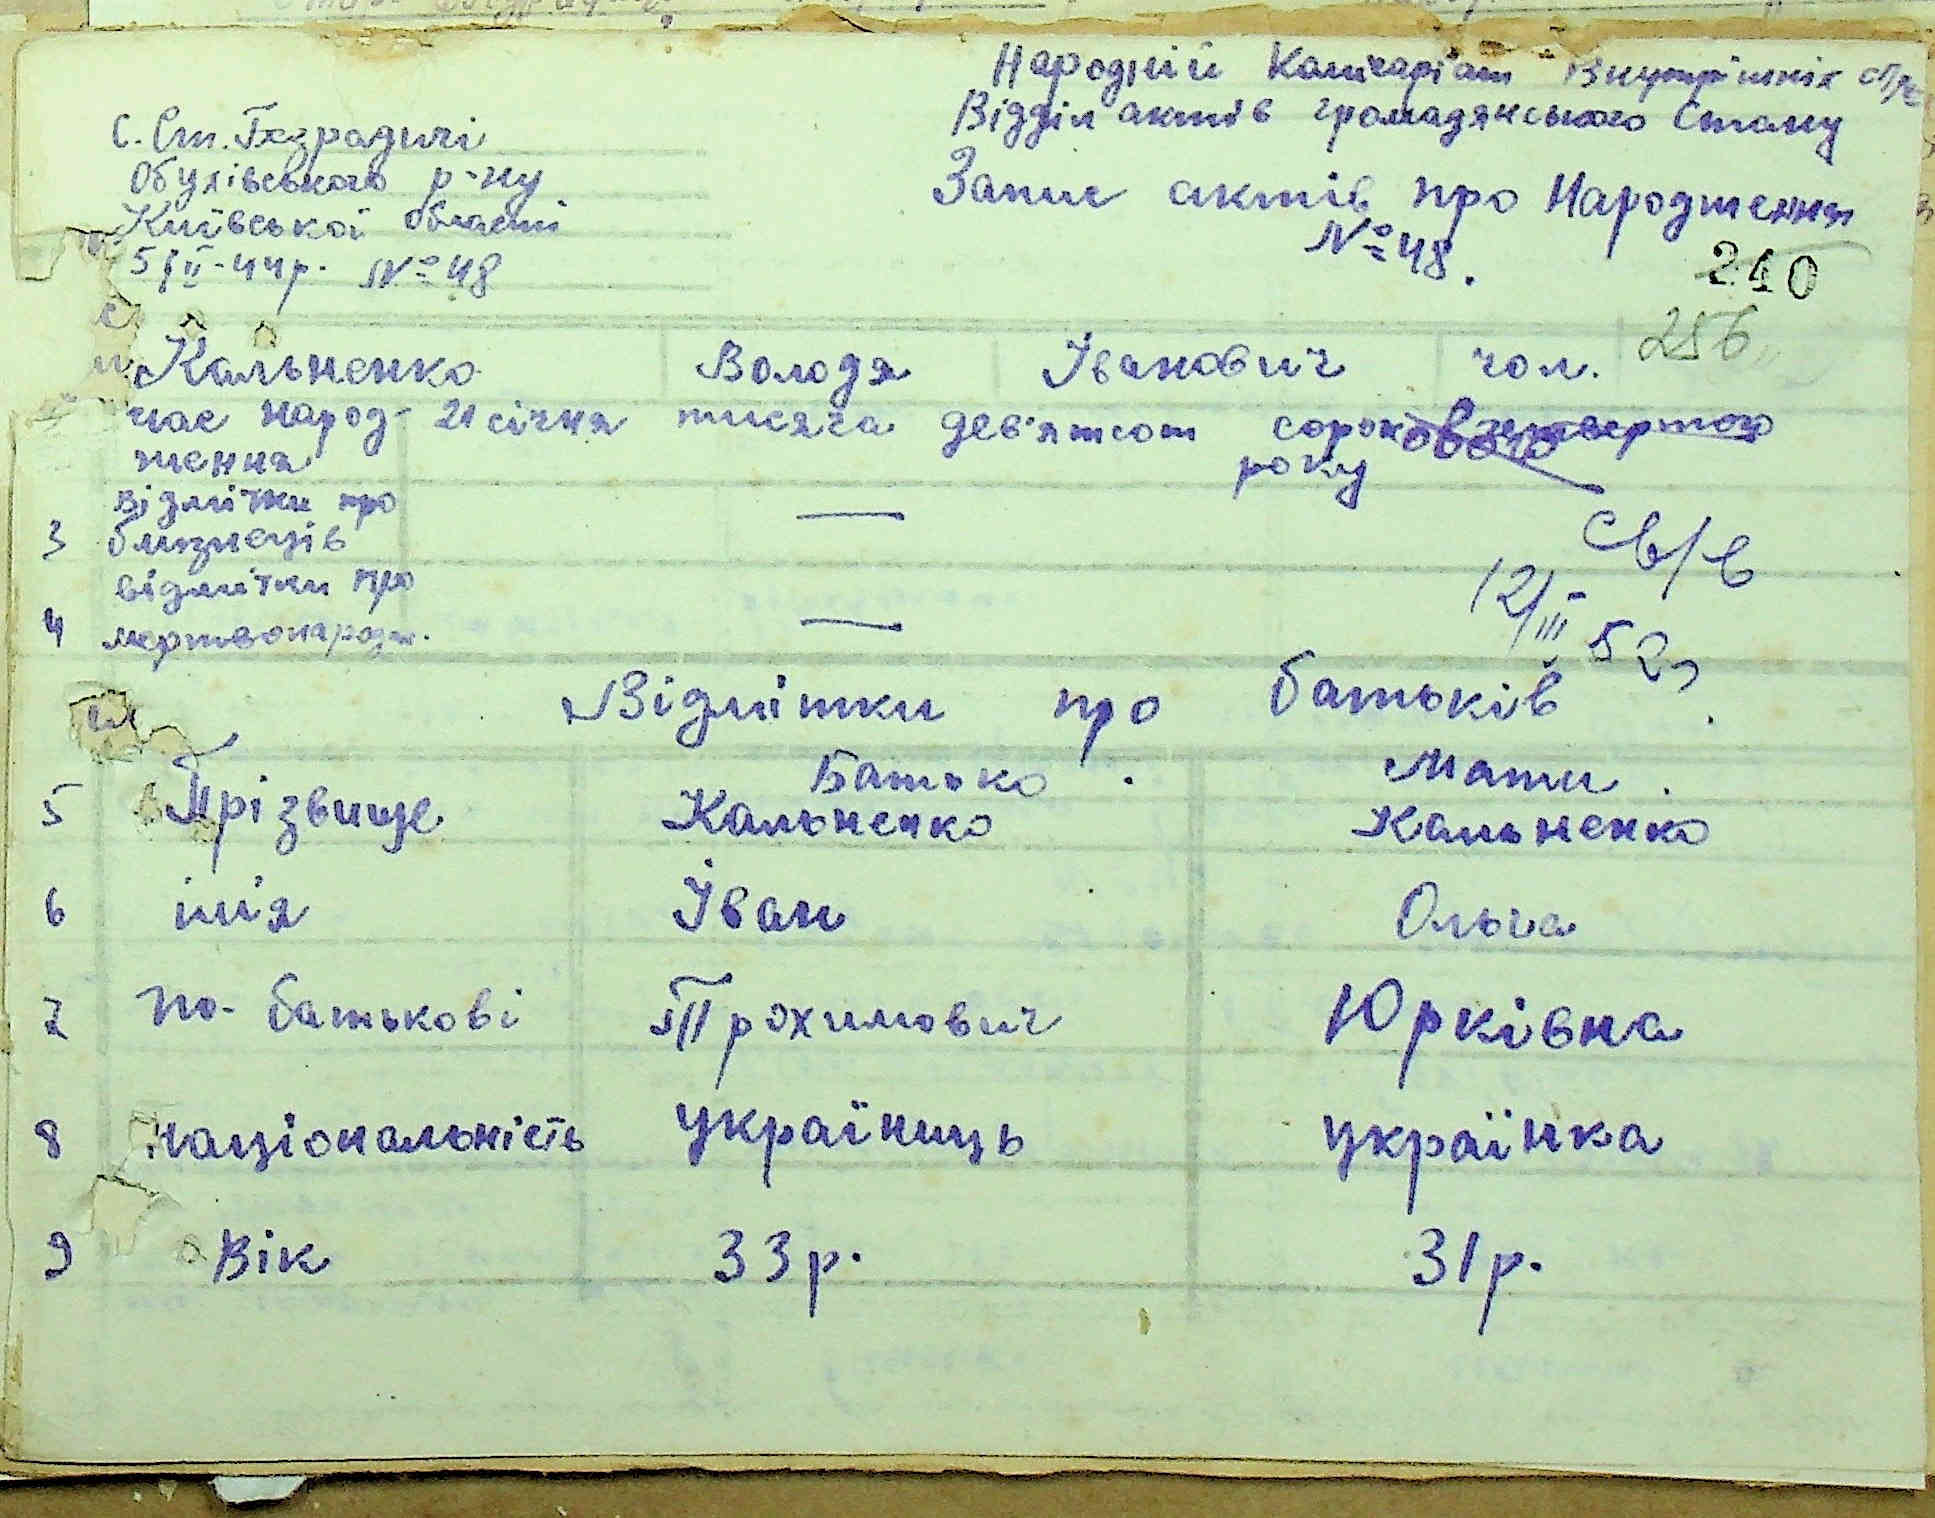 Народній Комісаріат Внутрішніх Спр
Відділ актів громадянського Стану
Запис актів про Народження
№ 48.
С. Ст. Безрадичі
Обухівського р-ну
Київської області
5/ІІ-44р. № 48
210
256
Кальненко Володя Іванович чол.
час народ- 21 січня тисяча дев'ятсот сорок четвертого
ження року
відмітки про
3 близнеців —
відмітки про
4 мертвонародж. —
св/в
12/ІІІ 52р
Відмітки про батьків
Батько Мати
5 Прізвище Кальненко Кальненко
6 ім'я Іван Ольга
7 по-батькові Прохимович Юрківна
8 національність україниць українка
9 Вік 33р. 31р.